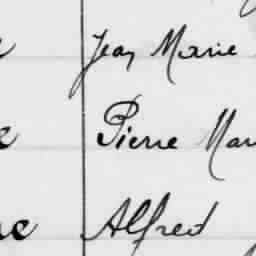 Jean Marie
Pierre Mar
Alfred